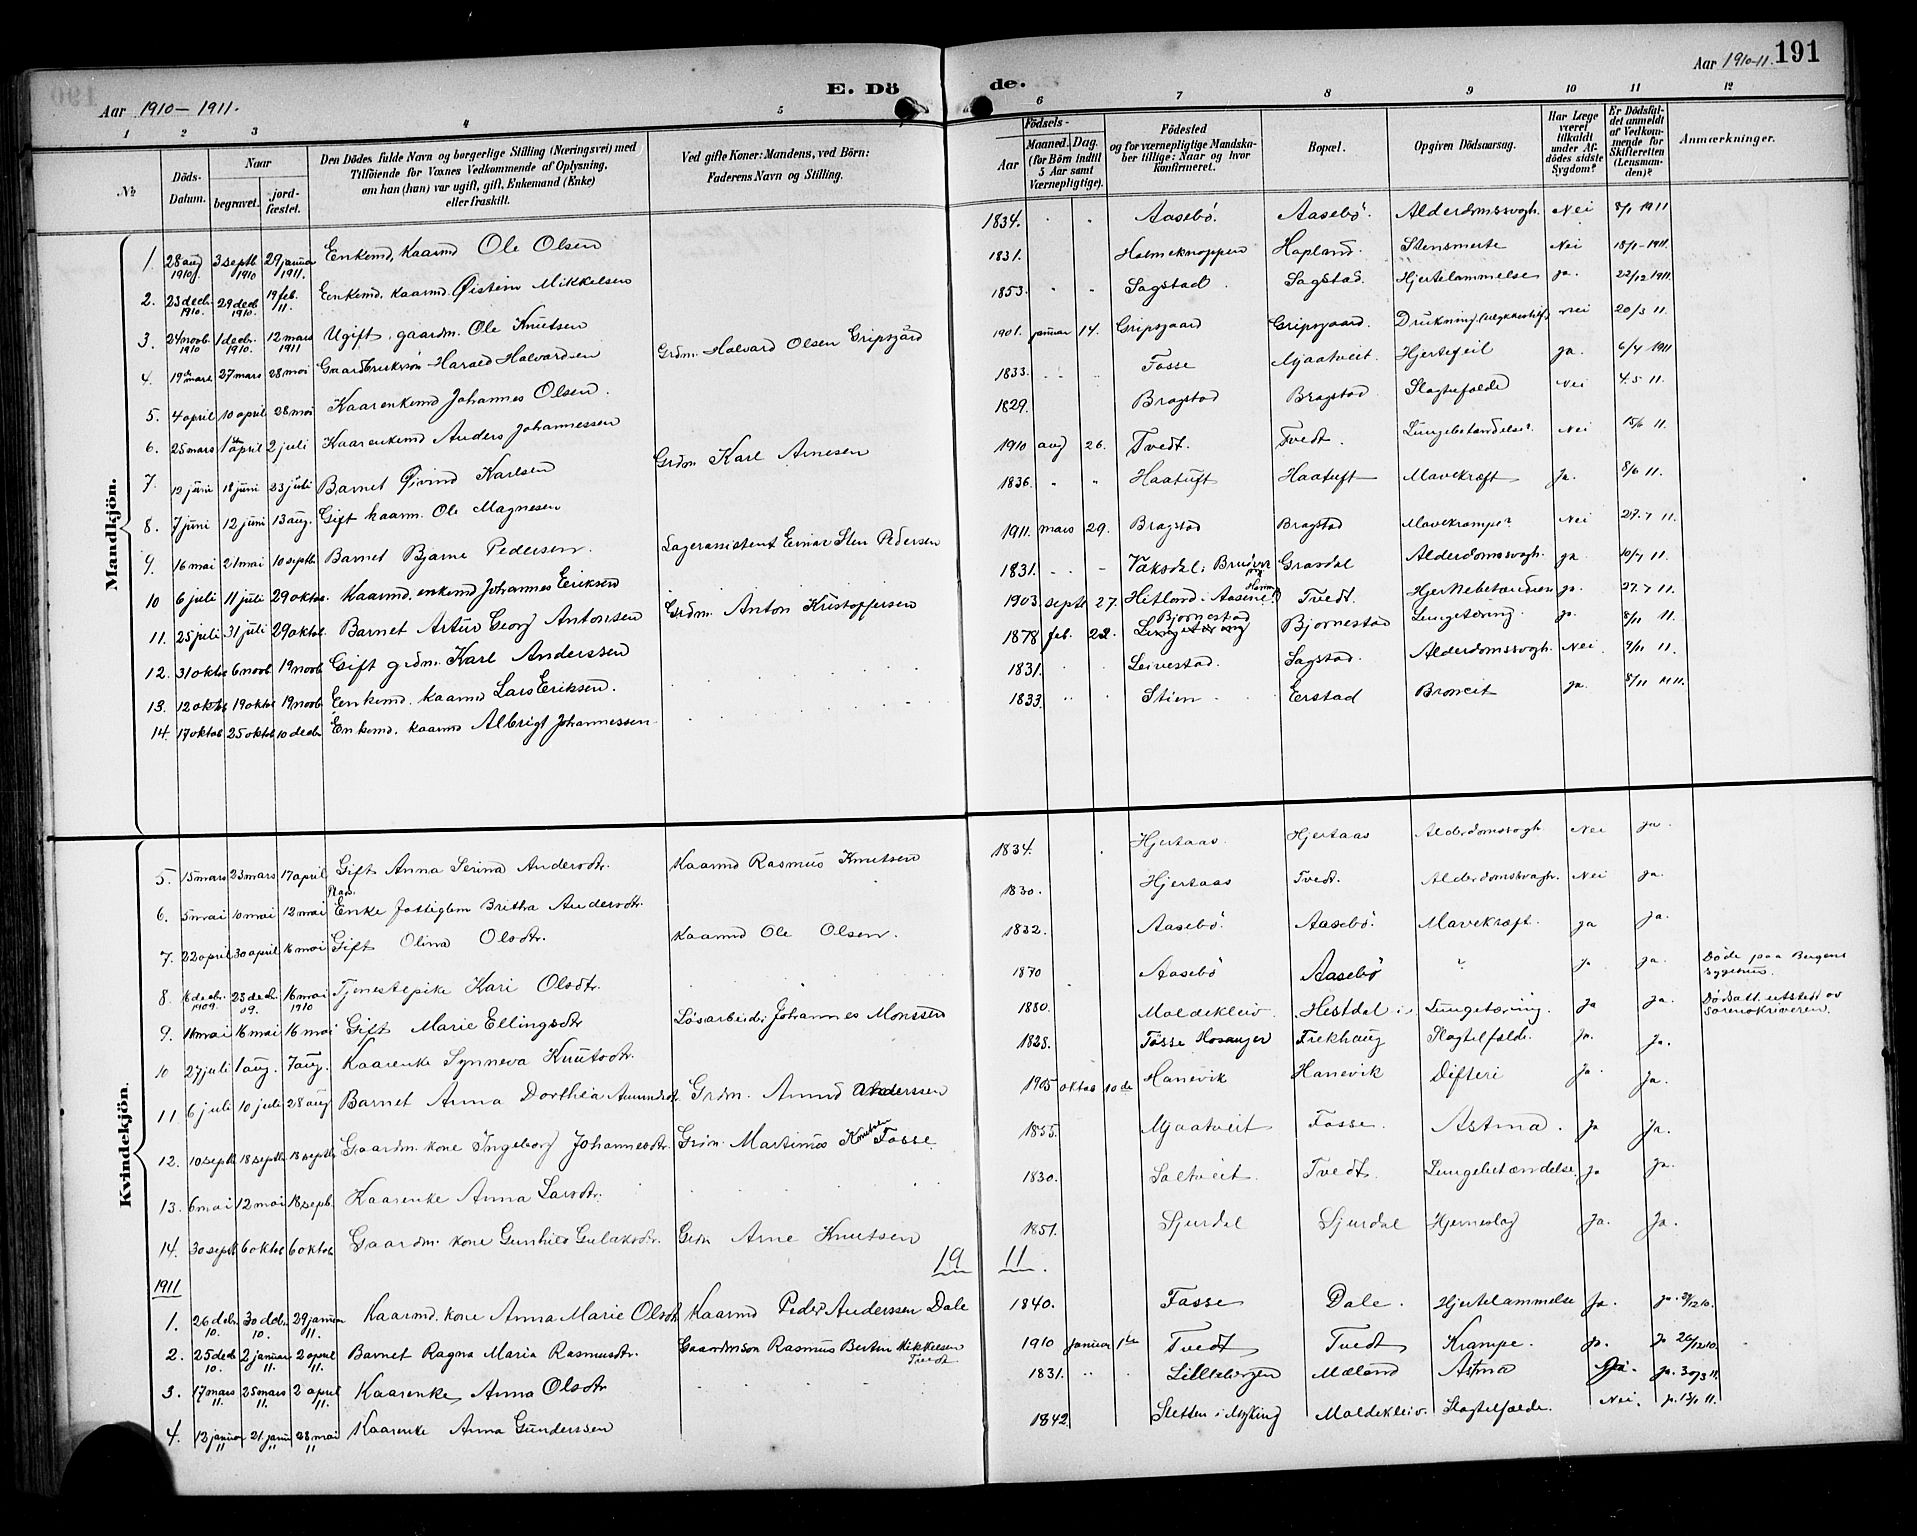 Aar 1910 - 1911. E. Döde. Aar 1910-11. 191
1 2 3 4 5 6 7 8 9 10 11 12
№ Döds-Datum. Naar begravet. jordfæstet. Den Dödes fulde Navn og borgerlige Stilling (Næringsvei) med Tilföiende for Voxnes Vedkommende af Oplysning, om han (hun) var ugift, gift, Enkemand (Enke) eller fraskilt. Ved gifte Koner: Mandens, ved Börn: Faderens Navn og Stilling. Födsels- Aar Maaned. Dag. (for Börn indtil 5 Aar samt Værnepligtige). Födested og for værnepligtige Mandskaber tillige: Naar og hvor konfirmeret. Bopæl. Opgiven Dödsaarsag. Har Læge været tilkaldt under Afdödes sidste Sygdom? Er Dödsfaldet anmeldt af Vedkommende for Skifteretten (Lensmanden)? Anmærkninger.
Mandkjön.
1. 28 aug 1910 3 septb 1910 29 januar 1911. Enkemd. Kaarmd Ole Olsen 1834. Aasebö. Aasebö. Alderdomssvagh. Nei 8/1 1911
2. 23 decb. 1910. 29 decb 1910. 19 feb. 11. Enkemd. kaarmd. Øistein Mikkelsen 1831. Holmeknappen Hopland. Stensmerte Nei 18/1-1911.
3. 24 novb 1910 1 decbr. 1910. 12 mars 1911 Ugift. gaardm. Ole Knutsen 1853. Sagstad. Sagstad. Hjertelammelse ja. 22/12 1911.
4. 19de mars 27 mars 28 mai Gaardbrukersön Harald Halvardsen Grdm. Halvard Olsen Gripsgård 1901. januar 14. Gripsgaard Gripsgaard. Drukning Nei 20/3 11.
5. 4 april 10 april 28 mai Kaarenkemd Johannes Olsen. 1833. Fosse Mjaatveit. Hjertefeil ja. 6/4 1911
6. 25 mars 1ste april 2 juli Kaarenkemd Anders Johannessen 1829. Bragstad Bragstad. Slagtilfælde Nei 4.5 11.
7. 12 juni 18 juni 23 juli Barnet Øivind Karlsen Grdm Karl Arnesen 1910 aug 26. Tvedt. Tvedt. Lungebetændelse? Nei 15/6 11.
8. 7 juni 12 juni 13 aug. Gift kaarm. Ole Magnesen 1836. Haatuft Haatuft Mavekræft Ja. 8/6 11.
9. 16 mai 21 mai 10 septb Barnet Bjarne Pedersen. Lagerassistent Einar Sten Pedersen 1911. mars 29. Bragstad Bragstad Mavekrampe? Nei 27.7 11.
10 6 juli 11 juli 29 oktbr. Kaarmd. enkemd Johannes Eriksen 1831. Vaksdal i Bruvik Grasdal Alderdomssvagh. ja 10/7 11.
11. 25 juli 31 juli 29 oktob. Barnet Artur Georg Antonsen Grdm. Anton Kristoffersen 1903 septe 27. Hitland i Aasene Tvedt. Hjernebetændelse ja. 27.7 11.
12. 31 oktob 6 novb. 19 novb Gift grdm. Karl Anderssen 1878 feb. 22. Bjornestad Bjornestad Lungetæring. ja. 8/11 11.
13. 12 oktob 19 oktob 19 novb Enkemd. kaarmd Lars Eriksen. 1831. Leivestad. Sagstad. Alderdomssvagh. Nei. 9/11 11.
14. 17 oktob 25 oktob 10 decb Enkemd. kaarmd Albrigt Johannessen 1833. Stien Eerstad Broncit ja. 8/11 1911.
Kvindekjön.
5. 15 mars 23 mars 17 april Gift Anna Serina Andersdtr. Kaarmd Rasmus Knutsen 1834. Hjertaas. Hjertaas Alderdomssvagh. Nei ja.
6. 5 mai 10 mai 12 mai Enke Britha Andersdtr. 1830. Hjertaas Tvedt. Alderdomssvagh. Nei ja.
7. 22 april 30 april 16 mai Gift Olina Olsdtr. Kaarmd Ole Olsen. 1832. Aasebö. Aasebö. Mavekræft. ja ja.
8. 16 decbr. 1909. 23 decb. 09. 16 mai 1910 Tjenestepike Kari Olsdtr. 1870 Aasebö Aasebö ? ja ja. Døde paa Bergens sygehus.
9. 11 mai 16 mai 16 mai Gift Marie Ellingsdtr Løsarbeid. Johannes Monssen 1880. Moldekleiv. Hestdal i Lungetæring. ja ja. Dødsatt. utstedt av sorenskriveren.
10 27 juli 1 aug. 7 aug. Kaarenke Synneva Knutsdtr. 1828. Fosse Hosanger Frekhaug Slagtilfælde. ja. ja.
11 6 juli 10 juli 28 aug Barnet Anna Dorthea Amundsdtr. Grdm. Amund Anderssen 1905 oktob 10 de Hanevik Hanevik Difteri ja. ja.
12. 10 septb 18 septb 18 septb Gaardm. kone Ingeborg Johannesdtr. Grdm. Martinus Knutsen Fosse. 1855. Mjaatveit Fosse. Astma. ja ja.
13. 6 mai 12 mai 18 sepb. Kaarenke Anna Larsdtr. 1830. Saltveit. Tvedt. Lungebetændelse ja ja.
14. 30 septb 6 oktob 6 oktob Gaardm. kone Gunhild Gulaksdtr. Grdm Arne Knutsen 1851. Sjurdal Sjurdal Hjerneslag ja. ja.
1911 19 11.
1. 26 decb. 10. 30 decb. 10. 29 januar 11. Kaarmd. kone Anna Marie Olsdtr Kaarmd Peder Anderssen Dale 1840. Fosse Dale. Hjertelammelse ja. ja. 31/12 10.
2. 25 decb 10. 2 januar 11. 2 april 11. Barnet Ragna Maria Rasmusdtr. Gaardmson Rasmus Bertin Mikkelsen Tvedt 1910 januar 1ste Tvedt Tvedt Krampe. ja. ja 26/12 10.
3. 17 mars 11. 25 mars 11. 2 april 11. Kaarenke Anna Olsdtr 1831. Lillebergen Mæland Astma ja. ja. 30/3 11.
4. 12 januar 11 21. janu 11 28 mai 11 Kaarenke Anna Gunderssen 1842. Sletten i Myking Moldekleiv. Slagtilfælde. Nei. ja. 13/1 11.